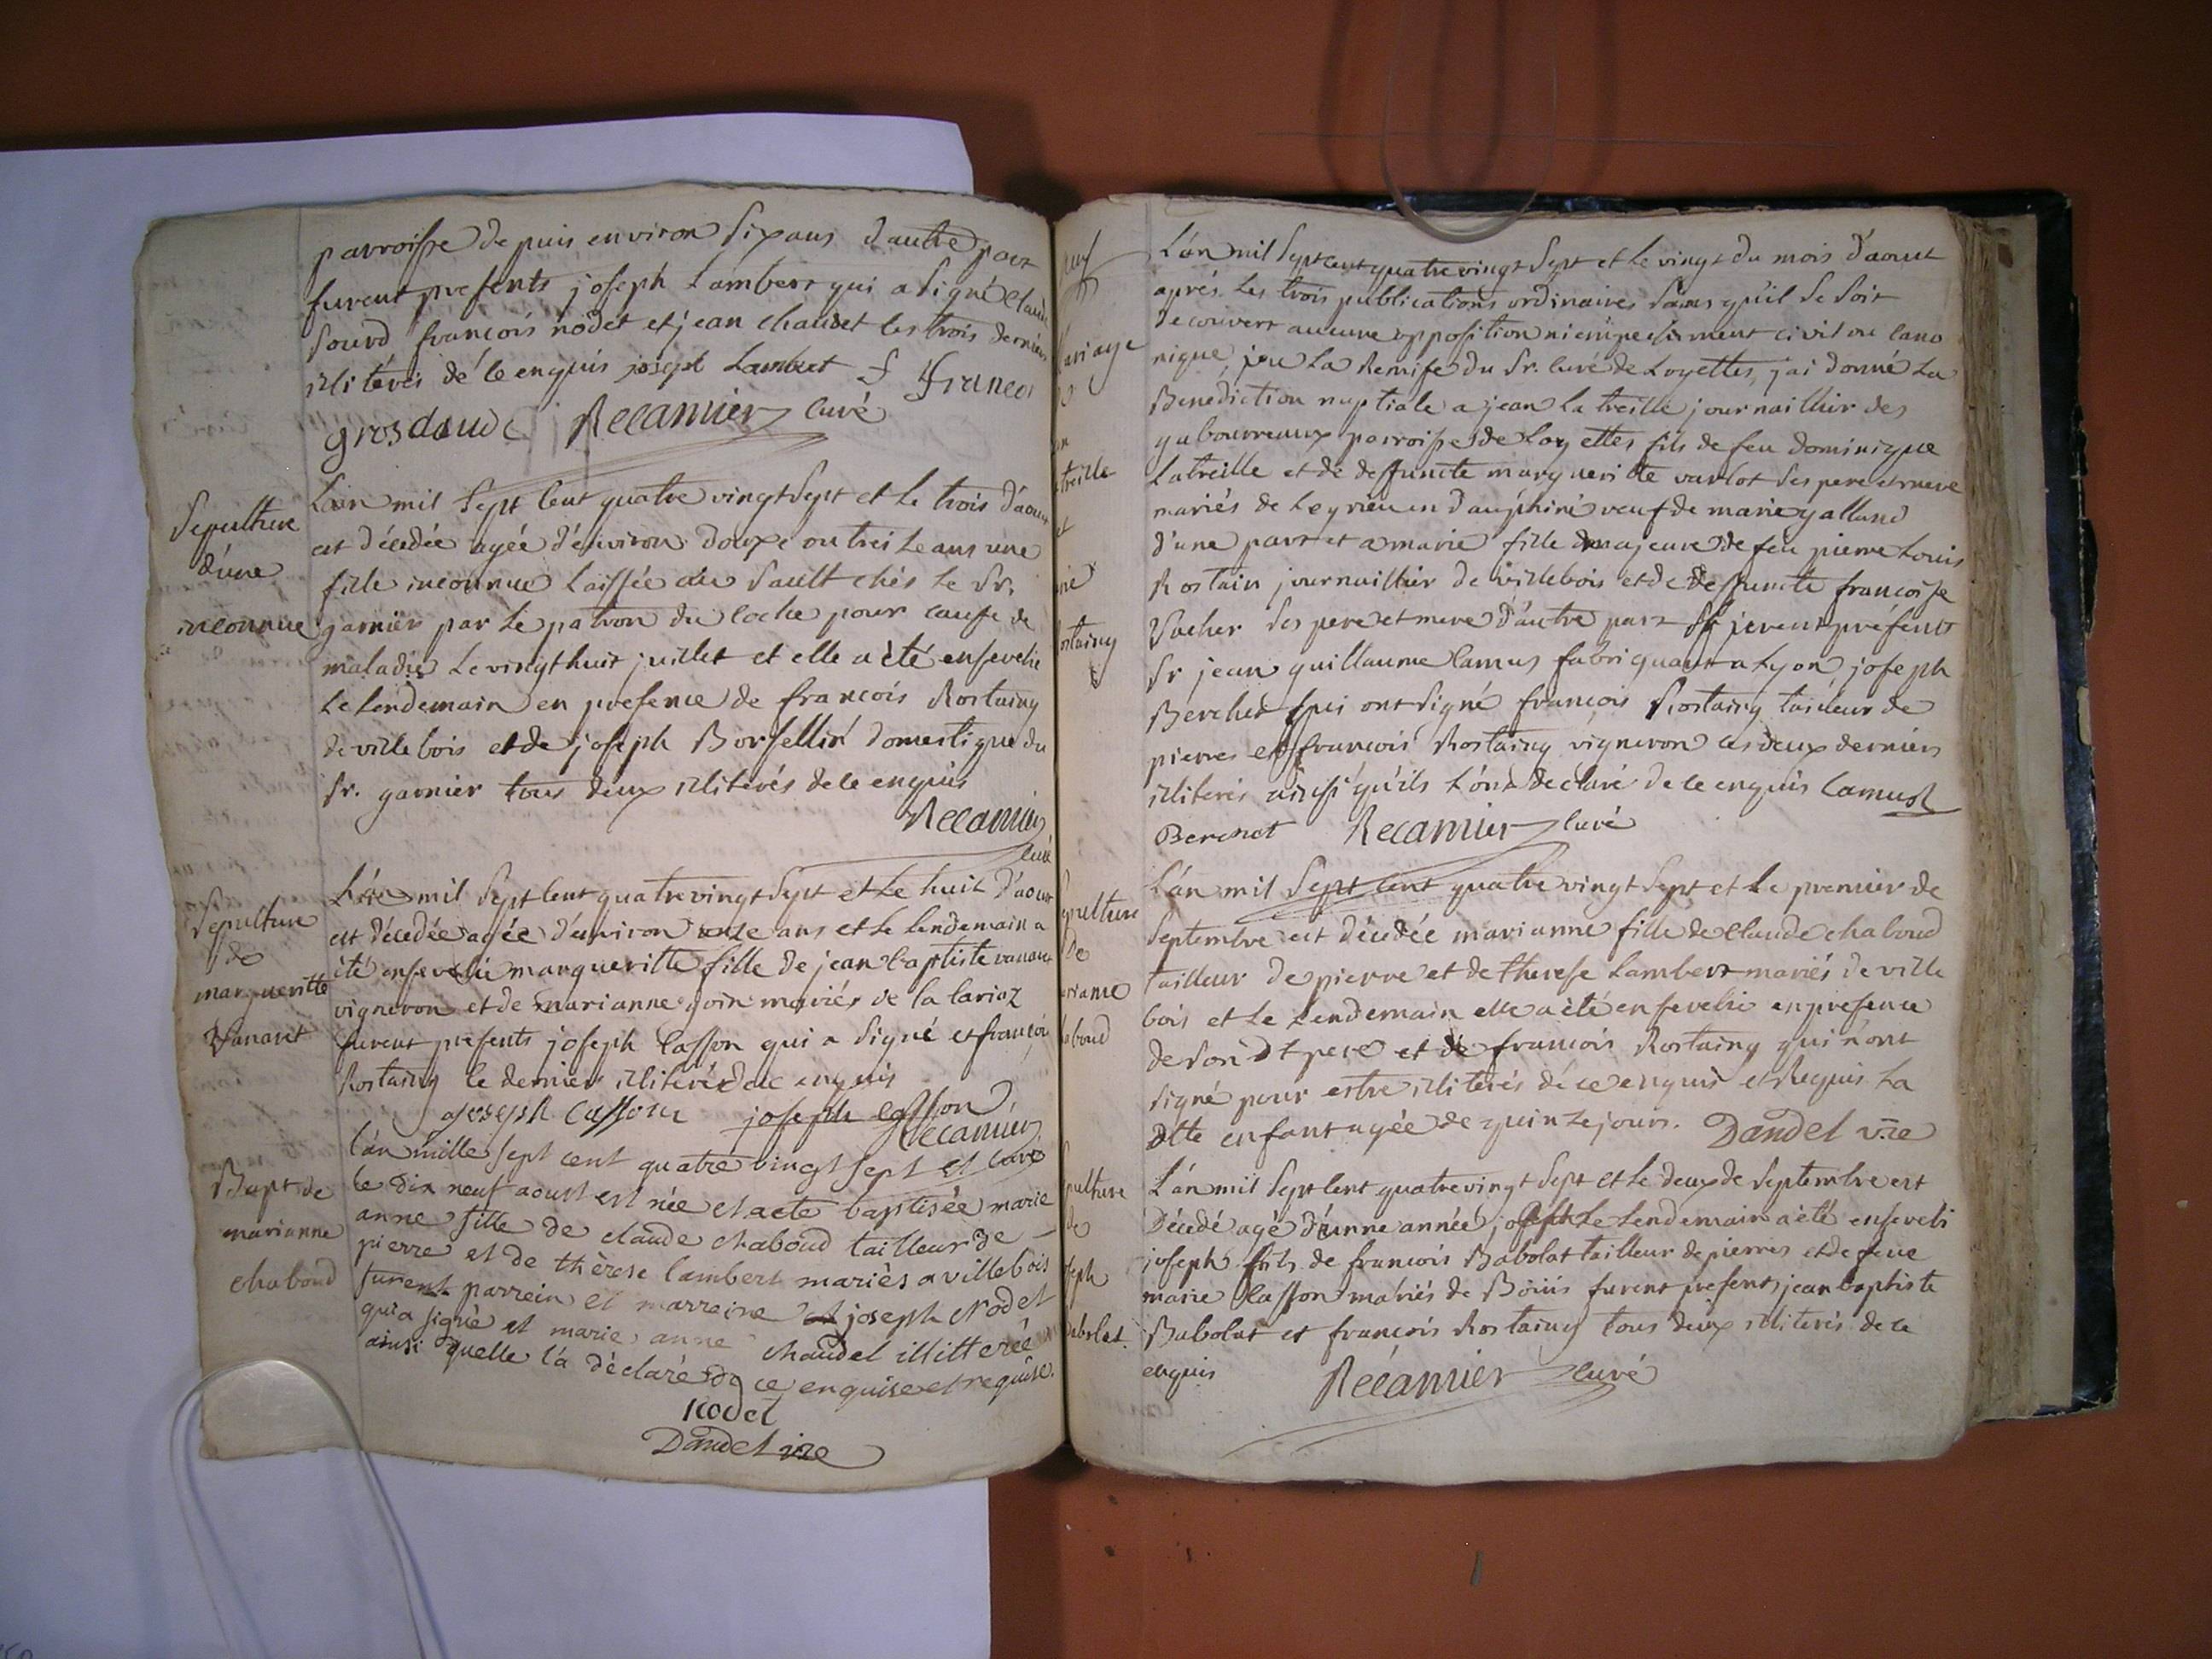 parroisse depuis environ six ans d'autre part
furent presents joseph Lambert qui a signé claude
Sourd françois nodet et jean chaudet les trois derniers
illitérés de ce enquis joseph Lambert f françoi
grosclaude Récamier curé
Sepulture
d'une
inconnue
L'an mil sept cent quatre vingt sept et le trois d'aoust
est décédée agée d'environ douze ou treize ans une
fille inconnue laissée au Sault chés le Sr.
garnier par le patron du coche pour cause de
maladie le vingt huit juillet et elle a été ensevelie
le lendemain en presence de françois Rostaing
de villebois et de joseph Borsellin domestique du
Sr. garnier tous deux illiterés de ce enquis
Récamier
curé
Sepulture
de
margueritte
Vanaret
L'an mil sept cent quatre vingt sept et le huit d'aoust
est décédée agée d'environ onze ans et le lendemain a
été ensevelie margueritte fille de jean baptiste vanaret
vigneron et de marianne goin mariés de la lariaz
furent présents joseph casson qui a signé et françois
Rostaing le dernier illiteré de ce enquis
joseph Casson joseph casson
Récamier
curé
Bapt de
marianne
chaboud
l'an mille sept cent quatre vingt sept et
le dix neuf aoust est née et a eté baptisée marie
anne fille de claude chaboud tailleur de
pierre et de thèrese lambert mariès a villebois
furent parrein et marreine et joseph Nodet
qui a signé et marie anne chaudel illitterée
ainsi quelle l'a déclaré de ce enquise et requise.
nodet
Dandel vre
ariage
treille
et
rie
ostaing
L'an mil sept cent quatre vingt sept et le vingt du mois d'aoust
après les trois publications ordinaires sans qu'il se soit
decouvert aucune opposition ni empechement civil ou cano
nique, veu la Remise du Sr. curé de Loyettes, j'ai donné la
Benediction nuptiale a jean la treille journaillier des
gabourreaux parroisse de Loyettes fils de feu dominique
Latreille et de deffuncte margueritte varlot ses pere et mere
mariés de Leyrieu en Dauphiné veuf de marie galland
d'une part et a marie fille majeure de feu pierre Louis
Rostain journaillier de villebois et de deffuncte françoise
Vacher ses pere et mere d'autre part furent présents
Sr jean guillaume Camus fabriquant a Lyon joseph
Berchet qui ont signé françois Rostaing tailleur de
pierres et françois Rostaing vigneron les deux derniers
illiterés ainsi qu'ils l'ont déclaré de ce enquis Camus
Berchet Récamier curé
epulture
de
arianne
aboud
L'an mil sept cent quatre vingt sept et le premier de
septembre est décédée marianne fille de claude chaboud
tailleur de pierre et de therese Lambert mariés de ville
bois et le lendemain elle a été ensevelie en presence
de son dt pere et de françois Rostaing qui n'ont
signé pour estre illiterés de ce enquis et Requis la
dtte enfant agée de quinze jours. Dandel vre
pulture
de
seph
abolat.
L'an mil sept cent quatre vingt sept et le deux de septembre est
décédé agé d'une année joseph le lendemain a été enseveli
joseph fils de françois Babolat tailleur de pierres et de feue
marie Casson mariés de Bouis furent presents jean baptiste
Babolat et françois Rostaing tous deux illiterés de ce
enquis Récamier curé